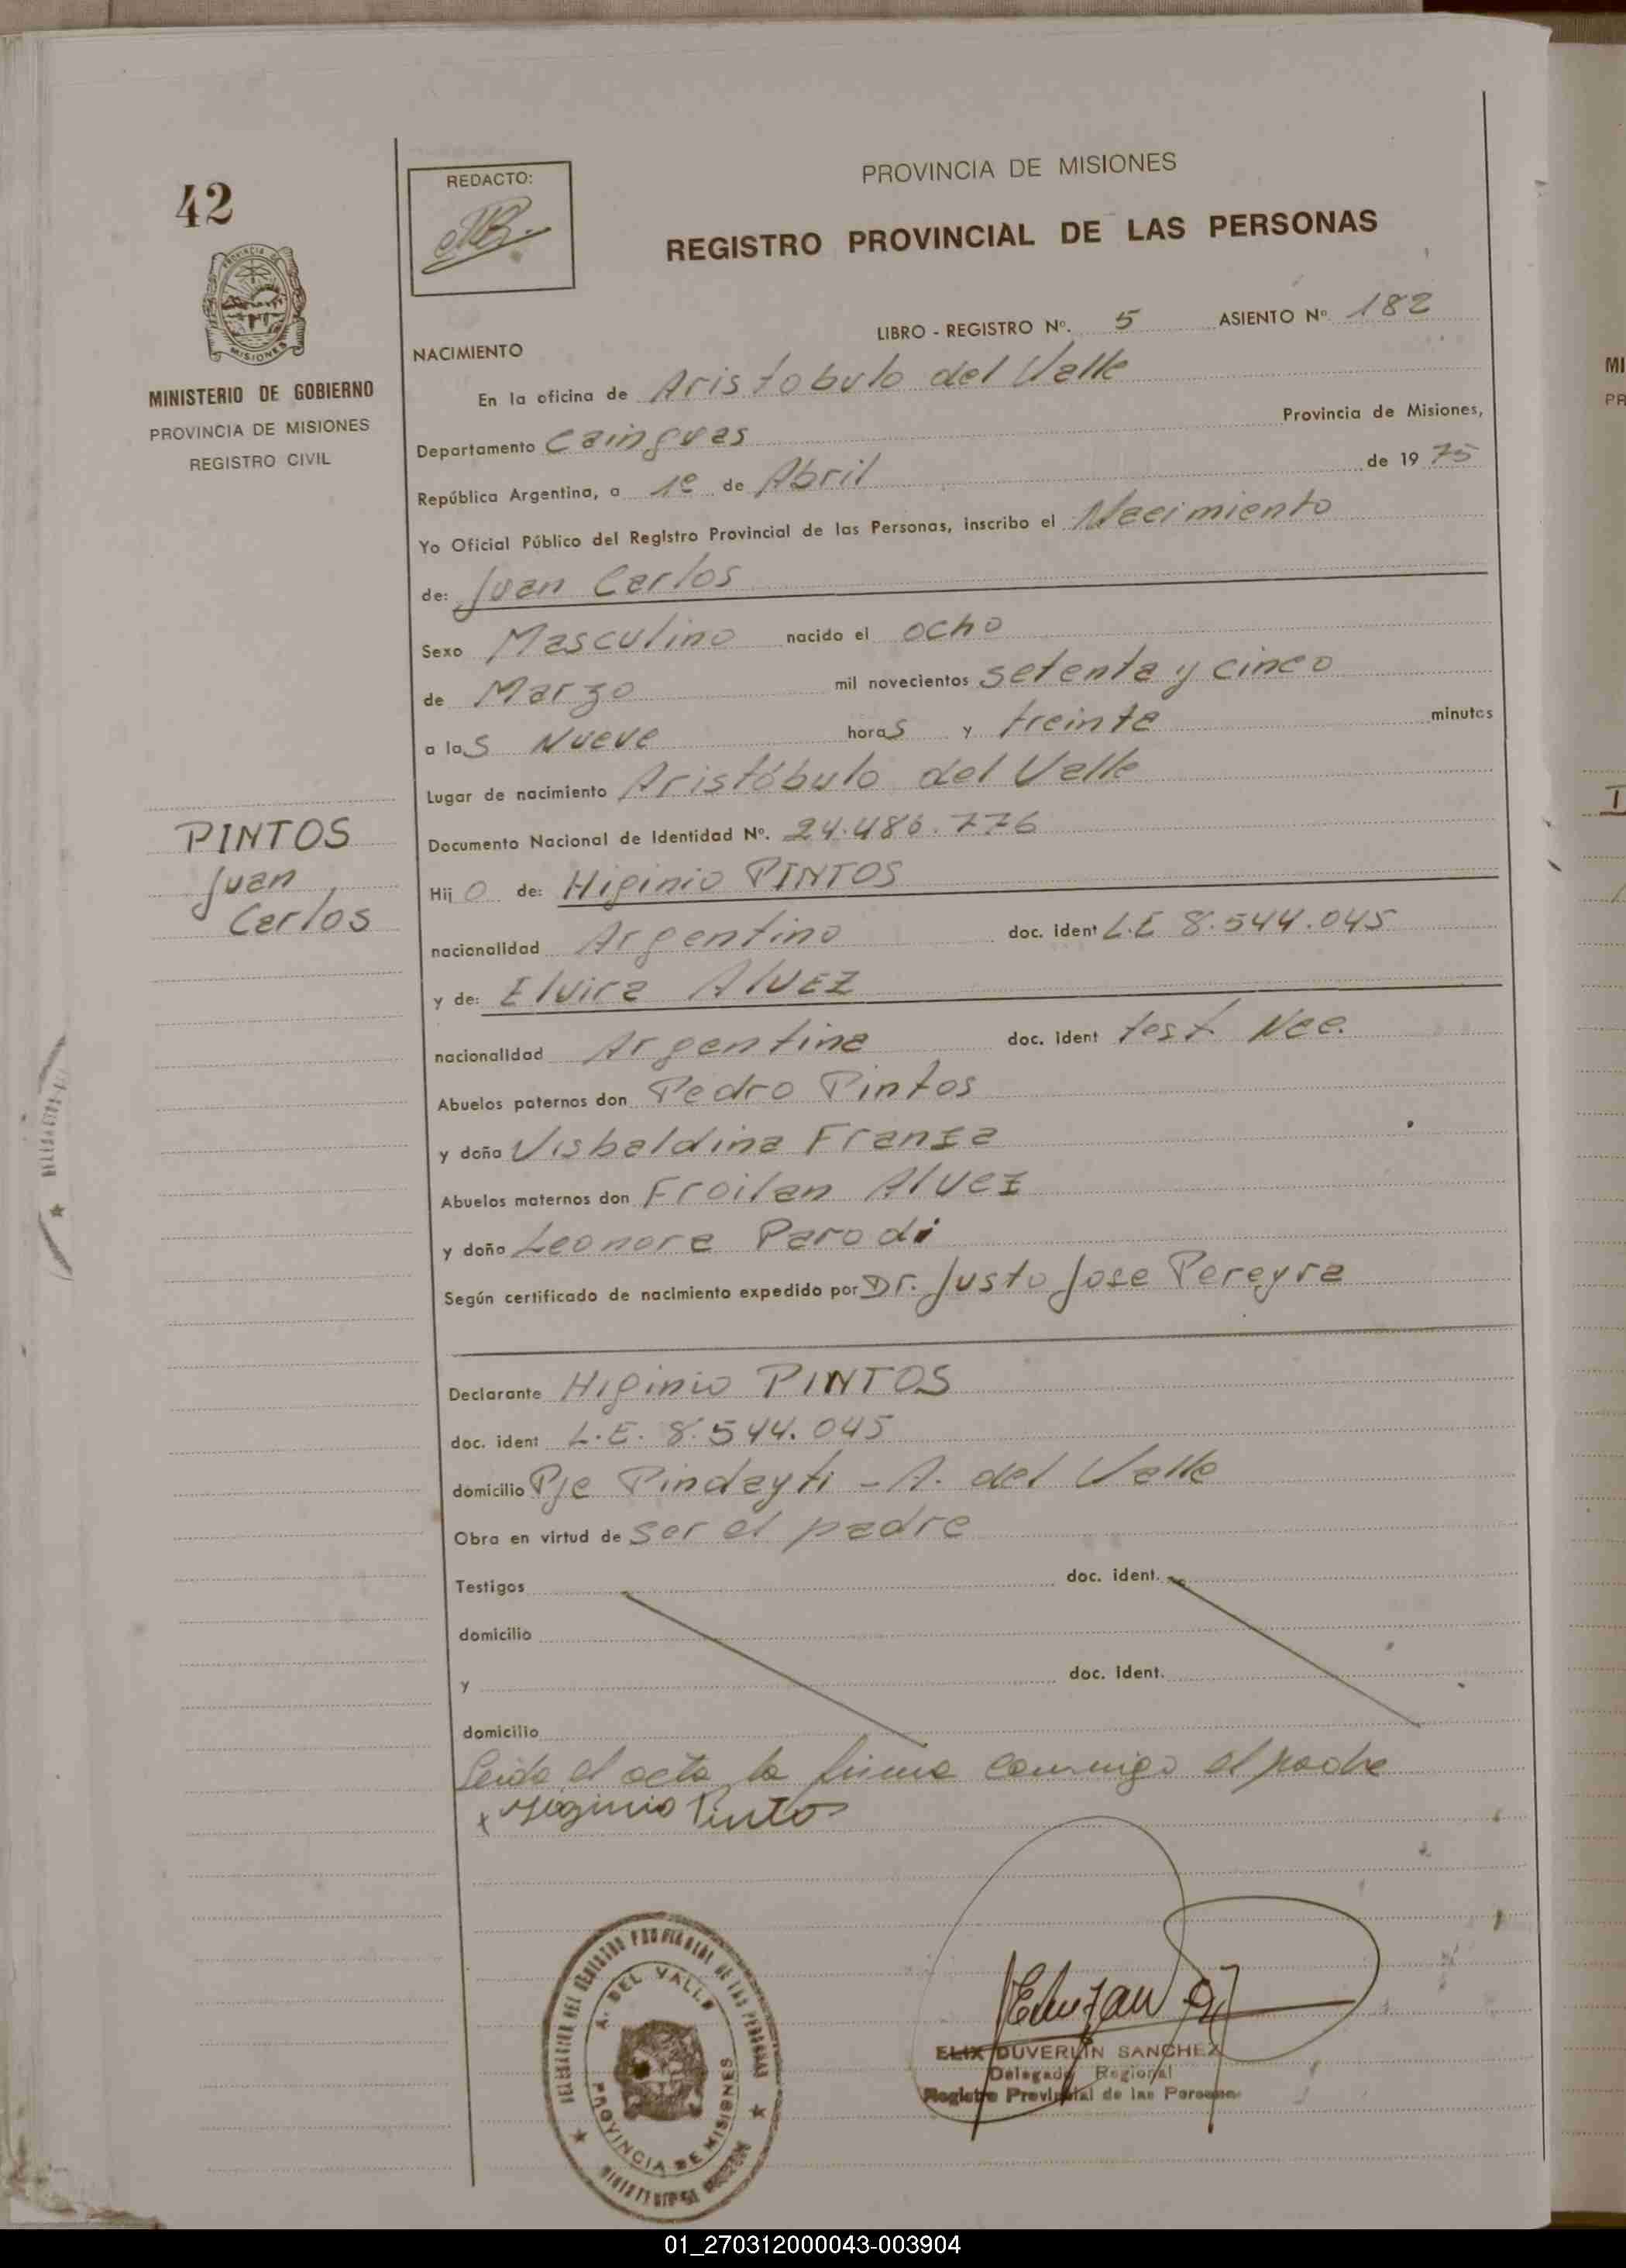 42
REDACTO:
PROVINCIA DE MISIONES
REGISTRO PROVINCIAL DE LAS PERSONAS
PROVINCIA DE
MISIONES
MINISTERIO DE GOBIERNO
PROVINCIA DE MISIONES
REGISTRO CIVIL
LIBRO - REGISTRO Nº. 5 ASIENTO Nº 182
NACIMIENTO
En la oficina de Aristobulo del Valle
Departamento Cainguas Provincia de Misiones,
República Argentina, a 1º de Abril de 19 75
Yo Oficial Público del Registro Provincial de las Personas, inscribo el Nacimiento
de: Juan Carlos
Sexo Masculino nacido el ocho
de Marzo mil novecientos setenta y cinco
a las Nueve horas y treinta minutos
Lugar de nacimiento Aristóbulo del Valle
Documento Nacional de Identidad Nº. 24.486.776
PINTOS
Juan
Carlos
Hijo de: Higinio PINTOS
nacionalidad Argentino doc. ident L.E 8.544.045
y de: Elvira AlVEZ
nacionalidad Argentina doc. ident test. Nac.
Abuelos paternos don Pedro Pintos
y doña Visbaldina Franza
Abuelos maternos don Froilan Alvez
y doña Leonora Parodi
Según certificado de nacimiento expedido por Dr. Justo Jose Pereyra
Declarante Higinio PINTOS
doc. ident L.E. 8.544.045
domicilio Pje Pindayti - A. del Valle
Obra en virtud de ser el padre
Testigos doc. ident.
domicilio
y doc. ident.
domicilio
Leida el acta la firma conmigo el padre
x Higinio Pintos
DELEGACION DEL REGISTRO PROVINCIAL DE LAS PERSONAS
A. DEL VALLE
PROVINCIA DE MISIONES
ELIX DUVERLIN SANCHEZ
Delegado Regional
Registro Provincial de las Personas
01_270312000043-003904